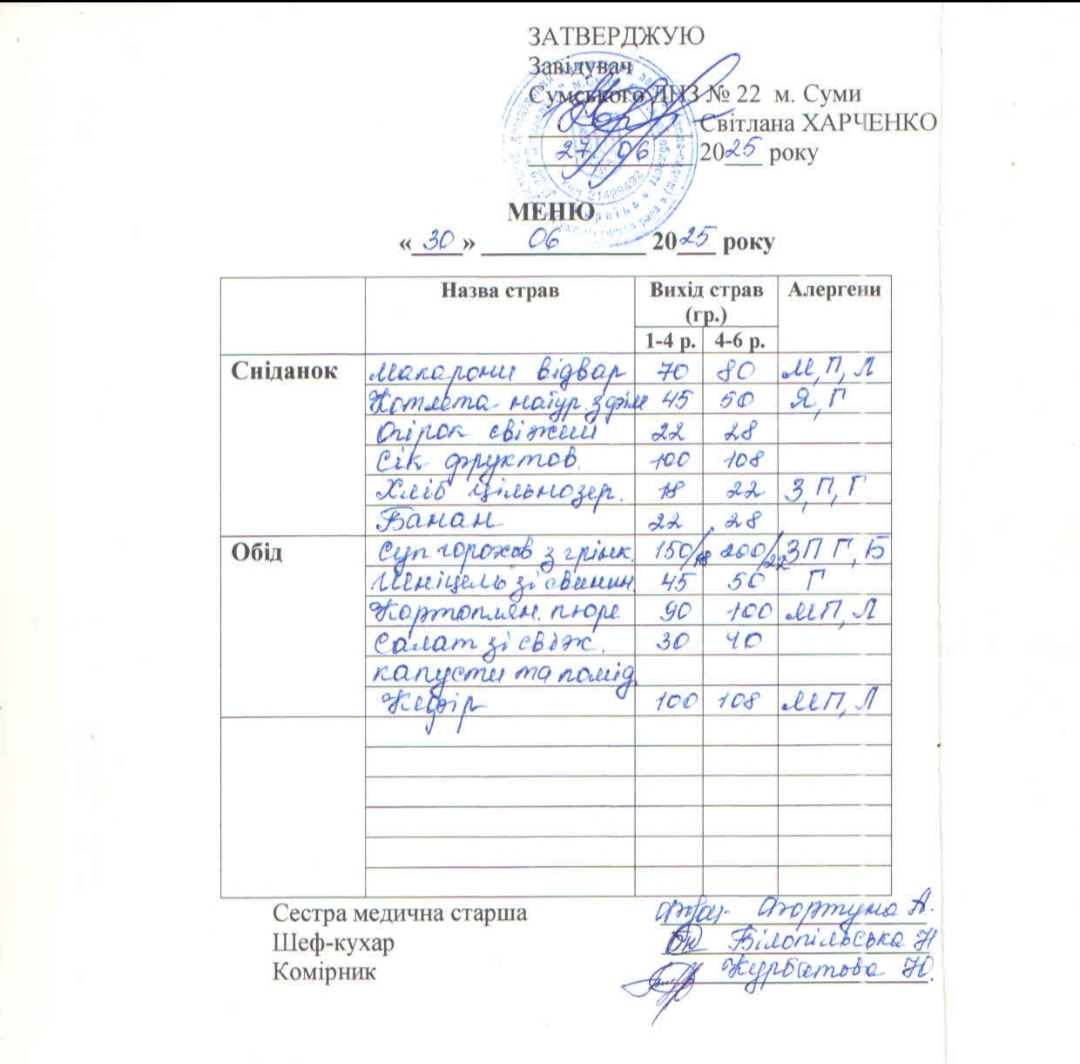 ЗАТВЕРДЖУЮ
Завідувач
Сумського ДНЗ № 22 м. Суми
Світлана ХАРЧЕНКО
27/06 2025 року
МЕНЮ
« 30 » 06 2025 року
Назва страв Вихід страв (гр.) Алергени
1-4 р. 4-6 р.
Сніданок Макарони відвар 70 80 М,П,Л
Котлета натур. з філе 45 50 Я,Г
Огірок свіжий 22 28
Сік фруктов. 100 108
Хліб цільнозер. 18 22 З,П,Г
Банан 22 28
Обід Суп горохов з грінк. 150/18 200/22 ЗП Г,Б
Шніцель зі свинин. 45 50 Г
Картоплян. пюре 90 100 МП,Л
Салат зі свіж. 30 40
капусти та помід
Кефір 100 108 МП,Л
Сестра медична старша Фортуна А.
Шеф-кухар Білопільська Н
Комірник Курбатова Ю.